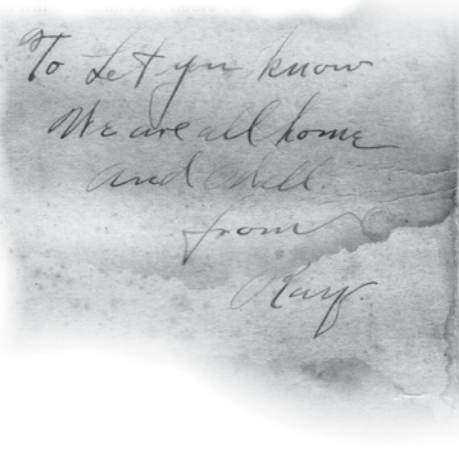 To Let you know
We are all home
and Well.
from
Ray.